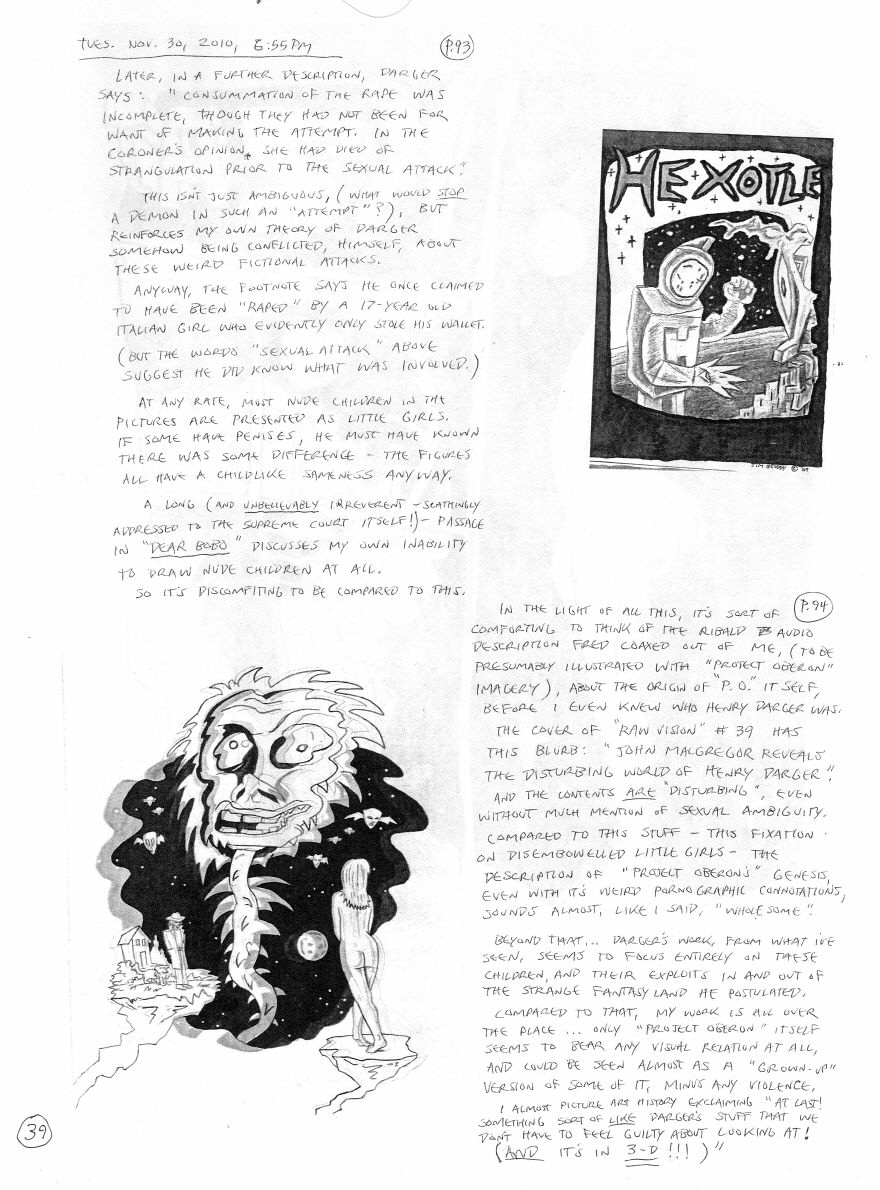 TUES. NOV. 30, 2010, 6:55 PM
P.93
LATER, IN A FURTHER DESCRIPTION, DARGER
SAYS: "CONSUMMATION OF THE RAPE WAS
INCOMPLETE, THOUGH THEY HAD NOT BEEN FOR
WANT OF MAKING THE ATTEMPT. IN THE
CORONER'S OPINION, SHE HAD DIED OF
STRANGULATION PRIOR TO THE SEXUAL ATTACK."
THIS ISN'T JUST AMBIGUOUS, (WHAT WOULD STOP
A DEMON IN SUCH AN "ATTEMPT"?), BUT
REINFORCES MY OWN THEORY OF DARGER
SOMEHOW BEING CONFLICTED, HIMSELF, ABOUT
THESE WEIRD FICTIONAL ATTACKS.
ANYWAY, THE FOOTNOTE SAYS HE ONCE CLAIMED
TO HAVE BEEN "RAPED" BY A 17-YEAR OLD
ITALIAN GIRL WHO EVIDENTLY ONLY STOLE HIS WALLET.
(BUT THE WORDS "SEXUAL ATTACK" ABOVE
SUGGEST HE DID KNOW WHAT WAS INVOLVED.)
AT ANY RATE, MOST NUDE CHILDREN IN THE
PICTURES ARE PRESENTED AS LITTLE GIRLS.
IF SOME HAVE PENISES, HE MUST HAVE KNOWN
THERE WAS SOME DIFFERENCE - THE FIGURES
ALL HAVE A CHILDLIKE SAMENESS ANYWAY.
A LONG (AND UNBELIEVABLY IRREVERENT - SCATHINGLY
ADDRESSED TO THE SUPREME COURT ITSELF!) - PASSAGE
IN "DEAR BOBO" DISCUSSES MY OWN INABILITY
TO DRAW NUDE CHILDREN AT ALL.
SO IT'S DISCOMFITING TO BE COMPARED TO THIS.
HEXOTLE
© '09
P.94
IN THE LIGHT OF ALL THIS, IT'S SORT OF
COMFORTING TO THINK OF THE RIBALD AUDIO
DESCRIPTION FRED COAXED OUT OF ME, (TO BE
PRESUMABLY ILLUSTRATED WITH "PROJECT OBERON"
IMAGERY), ABOUT THE ORIGIN OF "P.O." ITSELF,
BEFORE I EVEN KNEW WHO HENRY DARGER WAS.
THE COVER OF "RAW VISION" #39 HAS
THIS BLURB: "JOHN MACGREGOR REVEALS
THE DISTURBING WORLD OF HENRY DARGER".
AND THE CONTENTS ARE "DISTURBING", EVEN
WITHOUT MUCH MENTION OF SEXUAL AMBIGUITY.
COMPARED TO THIS STUFF - THIS FIXATION
ON DISEMBOWELLED LITTLE GIRLS - THE
DESCRIPTION OF "PROJECT OBERON'S" GENESIS,
EVEN WITH IT'S WEIRD PORNOGRAPHIC CONNOTATIONS,
SOUNDS ALMOST, LIKE I SAID, "WHOLESOME".
BEYOND THAT... DARGER'S WORK, FROM WHAT I'VE
SEEN, SEEMS TO FOCUS ENTIRELY ON THESE
CHILDREN, AND THEIR EXPLOITS IN AND OUT OF
THE STRANGE FANTASY LAND HE POSTULATED.
COMPARED TO THAT, MY WORK IS ALL OVER
THE PLACE ... ONLY "PROJECT OBERON" ITSELF
SEEMS TO BEAR ANY VISUAL RELATION AT ALL,
AND COULD BE SEEN ALMOST AS A "GROWN-UP"
VERSION OF SOME OF IT, MINUS ANY VIOLENCE.
I ALMOST PICTURE ART HISTORY EXCLAIMING "AT LAST!
SOMETHING SORT OF LIKE DARGER'S STUFF THAT WE
DON'T HAVE TO FEEL GUILTY ABOUT LOOKING AT!
(AND IT'S IN 3-D!!!)"
39